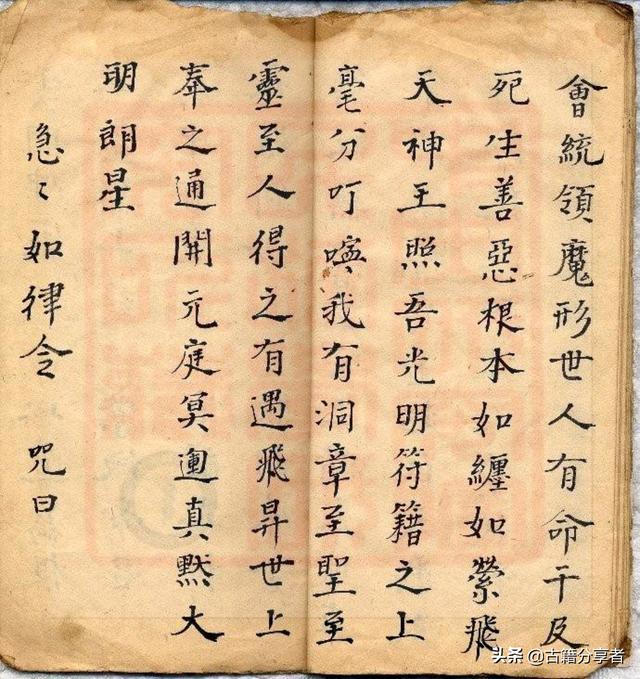 會統領魔形世人有命干及
死生善惡根本如纏如縈飛
天神王照吾光明符籍之上
毫分叮嚀我有洞章至聖至
靈至人得之有遇飛昇世上
奉之通開元庭冥運真黙大
明朗星
急〻如律令 咒曰
头条 @古籍分享者